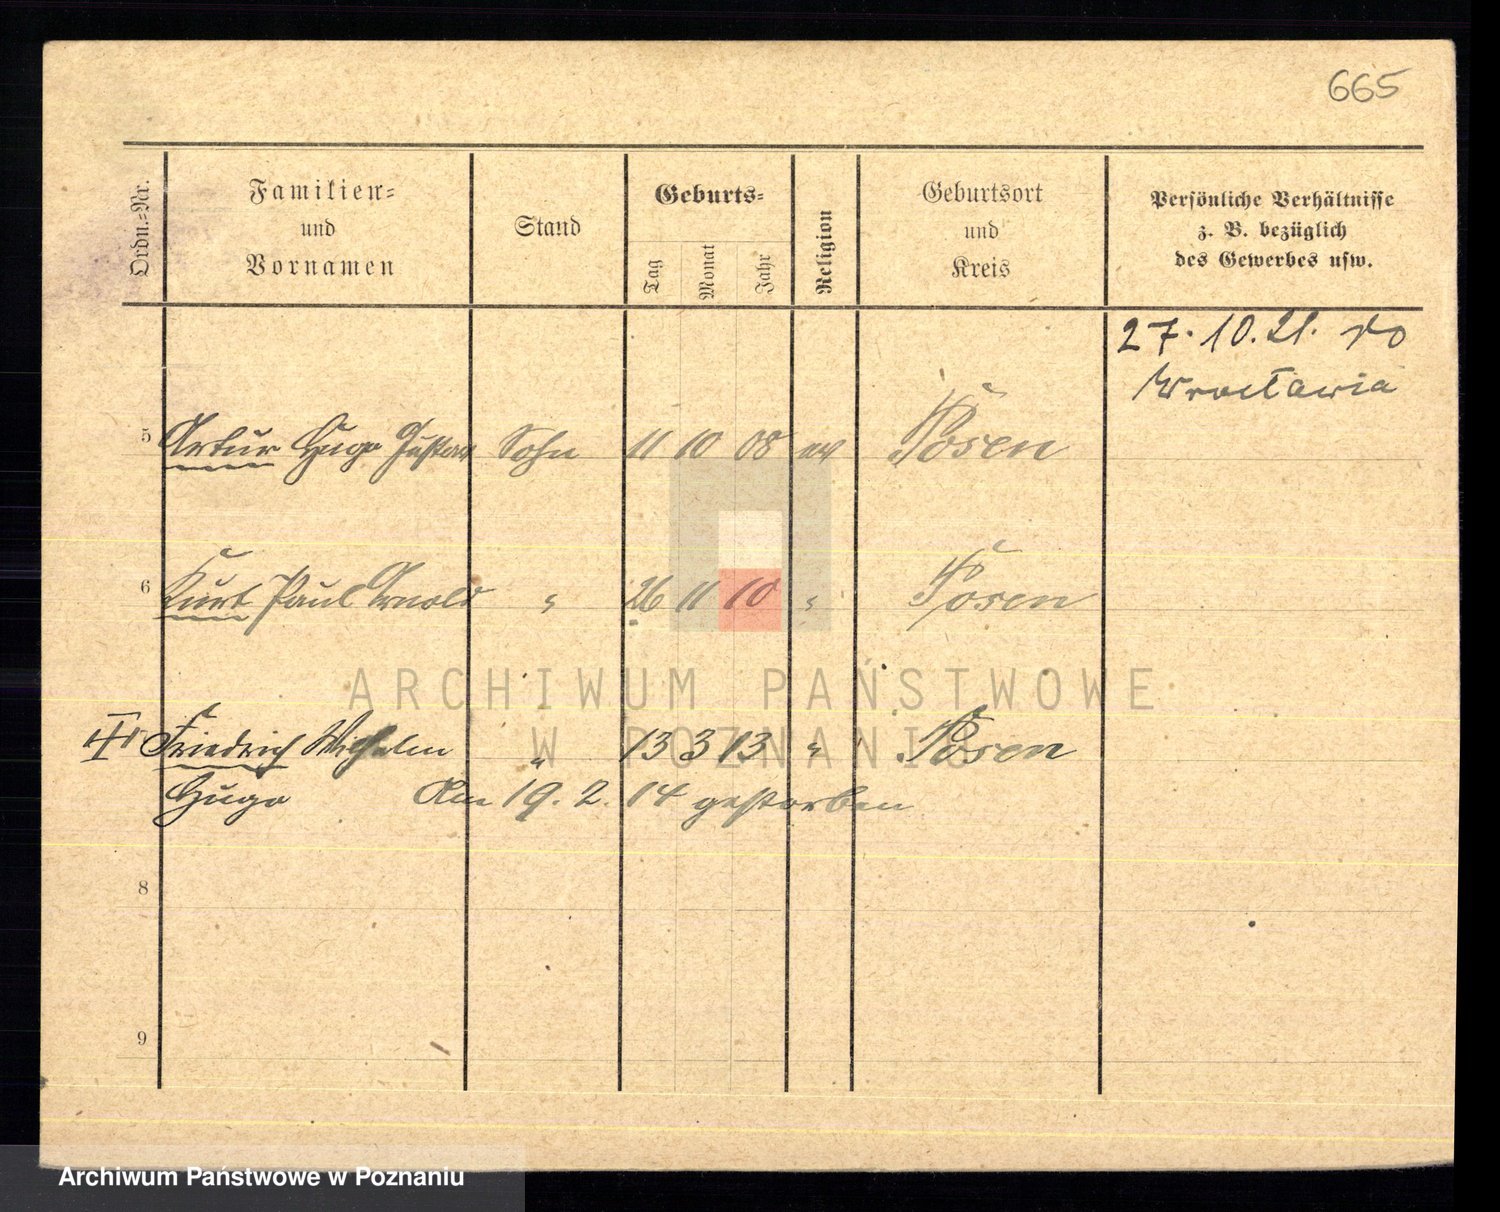 665
Ordn.=Nr.
Familien=
und
Vornamen
Stand
Geburts=
Tag
Monat
Jahr
Religion
Geburtsort
und
Kreis
Persönliche Verhältnisse
z. B. bezüglich
des Gewerbes usw.
27. 10. 21. do
Wrocławia
5 Artur Hugo Gustav Sohn 11 10 08 ev Posen
6 Kurt Paul Arnold " 26 11 10 " Posen
Friedrich Wilhelm " 13 3 13 " Posen
Hugo Am 19. 2. 14 gestorben
8
9
ARCHIWUM PAŃSTWOWE
W POZNANIU
Archiwum Państwowe w Poznaniu